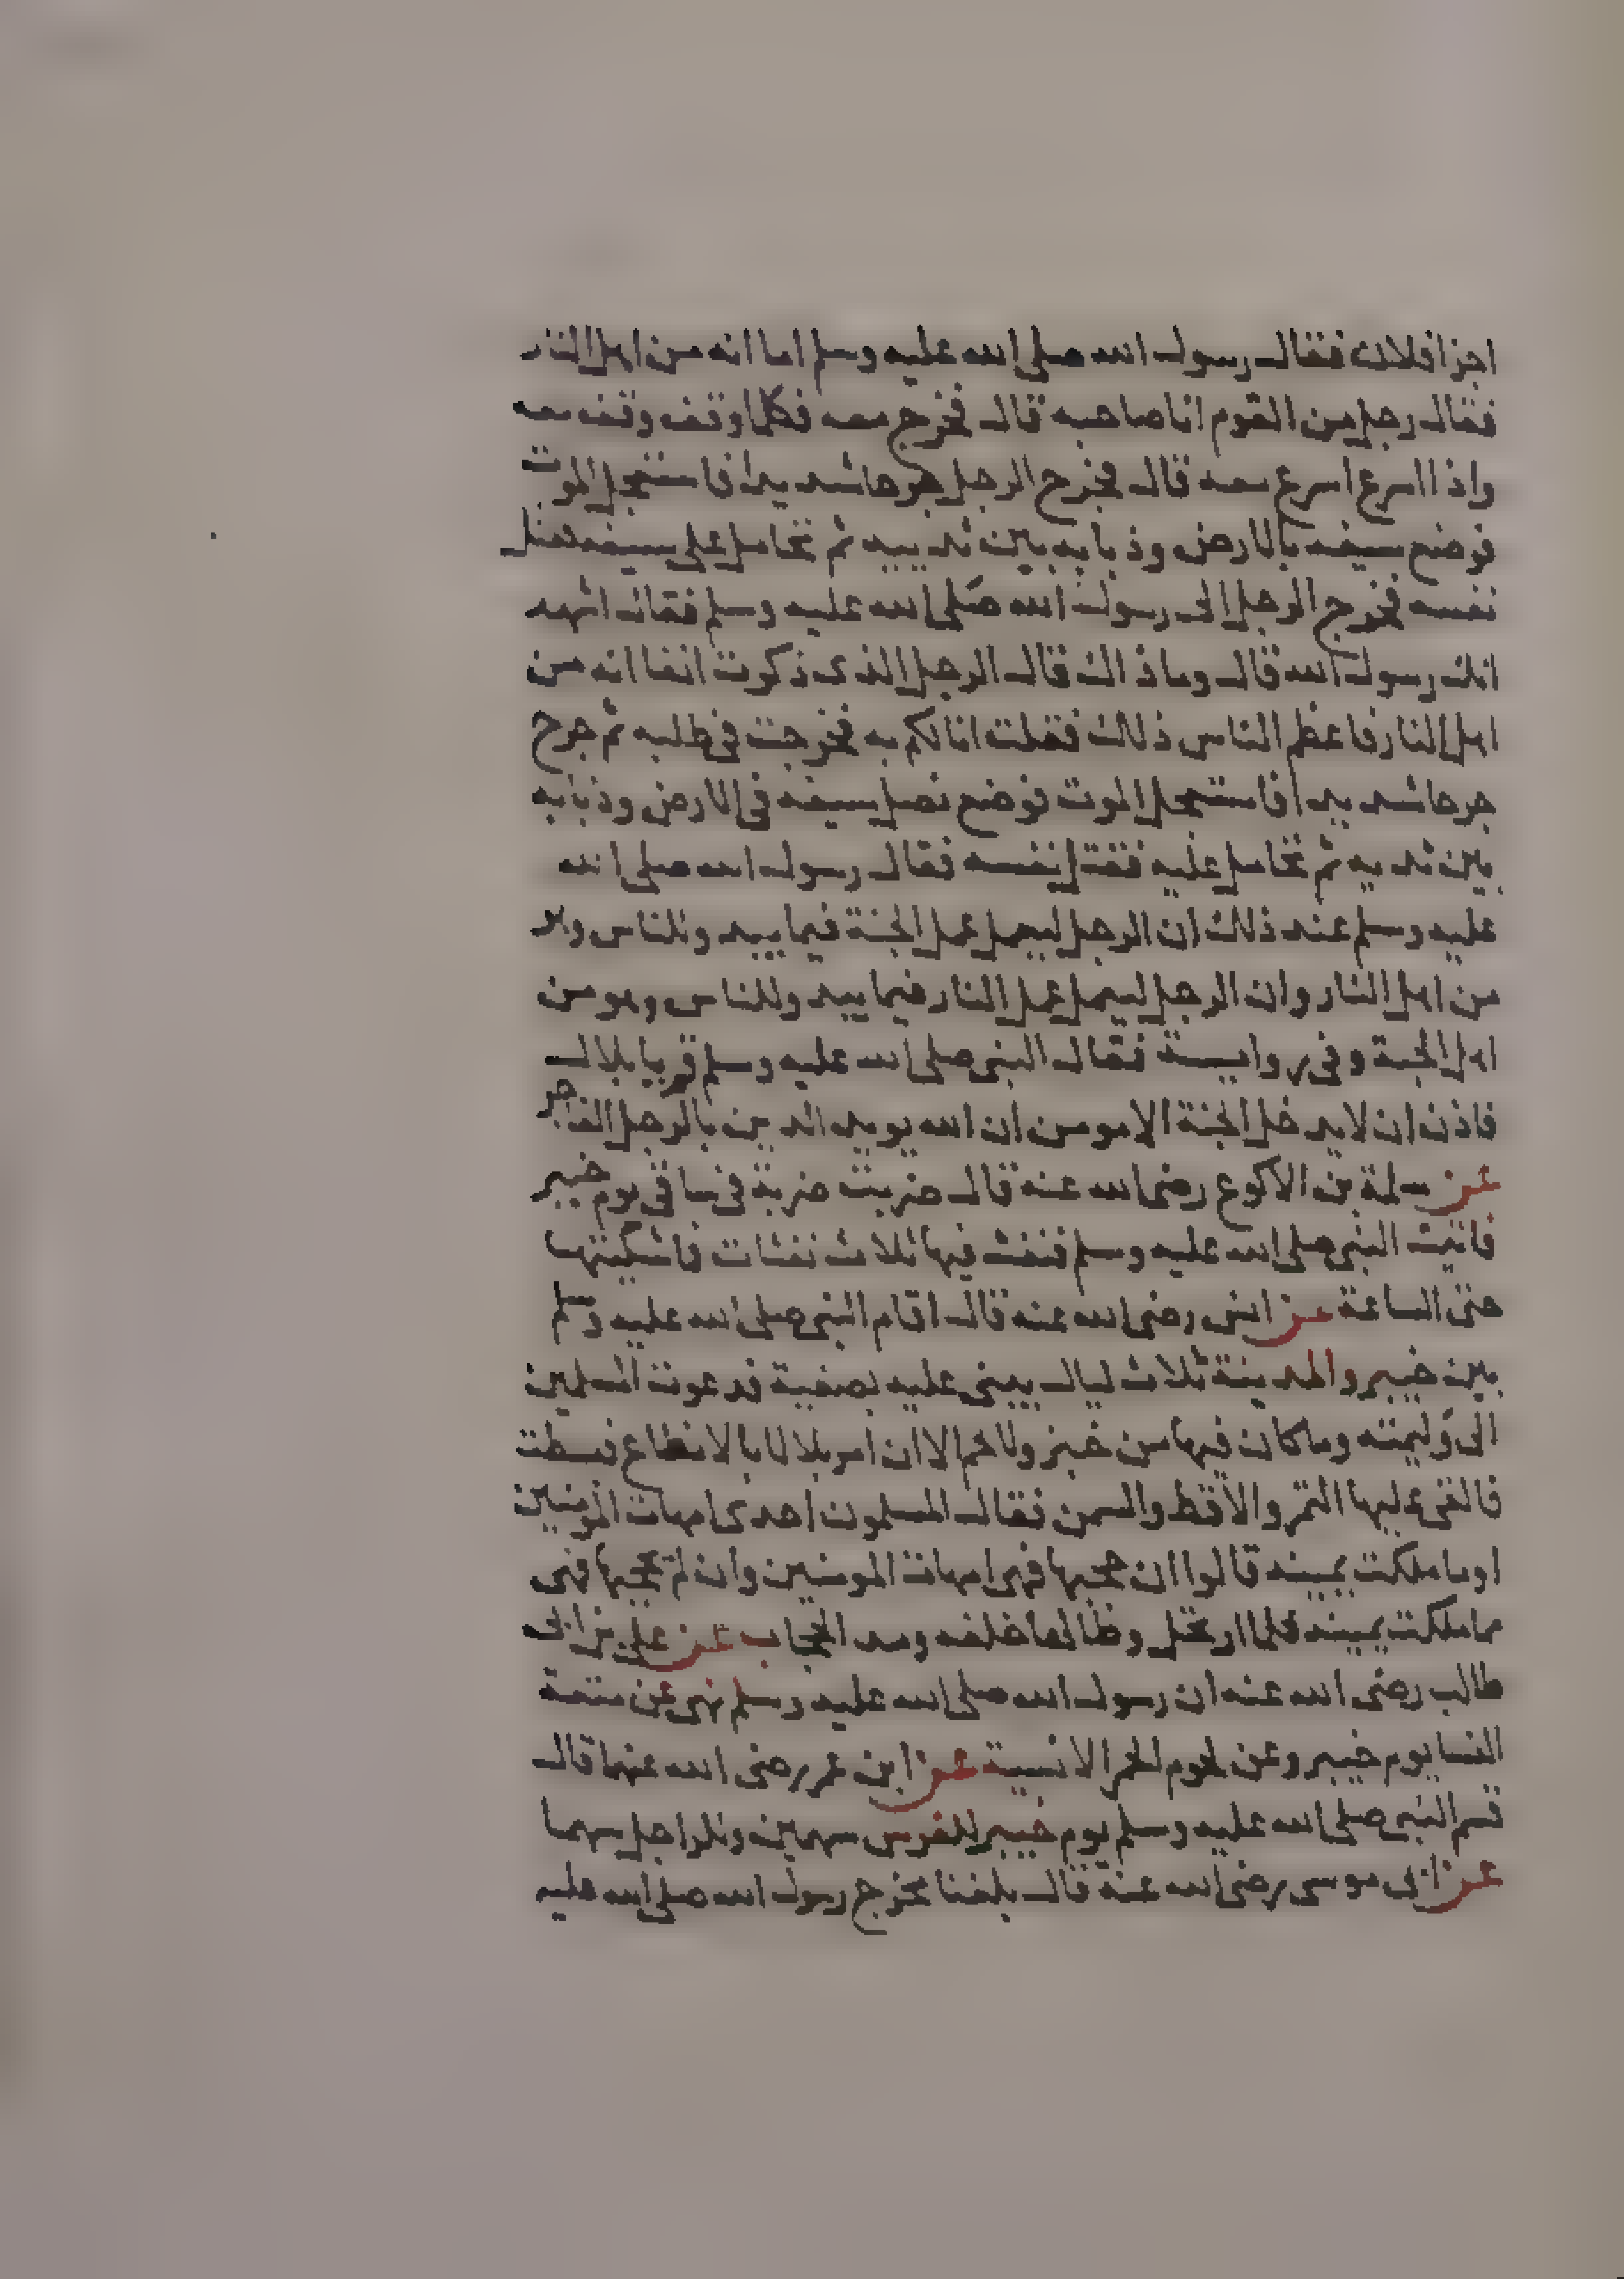 اجزا فلان فقال رسول الله صلى الله عليه وسلم اما انه من اهل النار
فقال رجل من القوم انا صاحبه قال فخرج معه فكلما وقف وقف معه
واذا اسرع اسرع معه قال فخرج الرجل جرحا شديدا فاستعجل الموت
فوضع سيفه بالارض وذبابه بين ثدييه ثم تحامل على سيفه فقتل
نفسه فخرج الرجل الى رسول الله صلى الله عليه وسلم فقال اشهد
انك رسول الله قال وما ذاك قال الرجل الذى ذكرت انفا انه من
اهل النار فاعظم الناس ذلك فقلت انا لكم به فخرجت فى طلبه ثم جرح
جرحا شديدا فاستعجل الموت فوضع نصل سيفه فى الارض وذبابه
بين ثدييه ثم تحامل عليه فقتل نفسه فقال رسول الله صلى الله
عليه وسلم عند ذلك ان الرجل ليعمل عمل الجنة فيما يبد وللناس وهو
من اهل النار وان الرجل ليعمل عمل النار فيما يبد وللناس وهو من
اهل الجنة وفى رواية فقال النبى صلى الله عليه وسلم قم يا بلال
فاذن ان لا يدخل الجنة الا مومن ان الله يويد الدين بالرجل الفاجر
عن سلمة بن الاكوع رضى الله عنه قال ضربت ضربة فى ساقى يوم خيبر
فاتيت النبى صلى الله عليه وسلم فنفث فيها ثلاث نفثات فما اشتكيتها
حتى الساعة عن انس رضى الله عنه قال اقام النبى صلى الله عليه وسلم
بين خيبر والمدينة ثلاث ليال يبنى عليه بصفية فدعوت المسلمين
الى وليمته وما كان فيها من خبز ولا لحم الا ان امر بلالا بالانطاع فبسطت
فالقى عليها التمر والاقط والسمن فقال المسلمون احدى امهات المومنين
او ما ملكت يمينه قالوا ان حجبها فهى امهات المومنين وان لم يحجبها فهى
مما ملكت يمينه فلما ارتحل وطا لها خلفه ومد الحجاب عن على بن ابى
طالب رضى الله عنه ان رسول الله صلى الله عليه وسلم نهى عن متعة
النسا يوم خيبر وعن لحوم الحمر الانسية عن ابن عمر رضى الله عنهما قال
قسم النبى صلى الله عليه وسلم يوم خيبر للفرس سهمين وللراجل سهما
عن ابى موسى رضى الله عنه قال بلغنا مخرج رسول الله صلى الله عليه